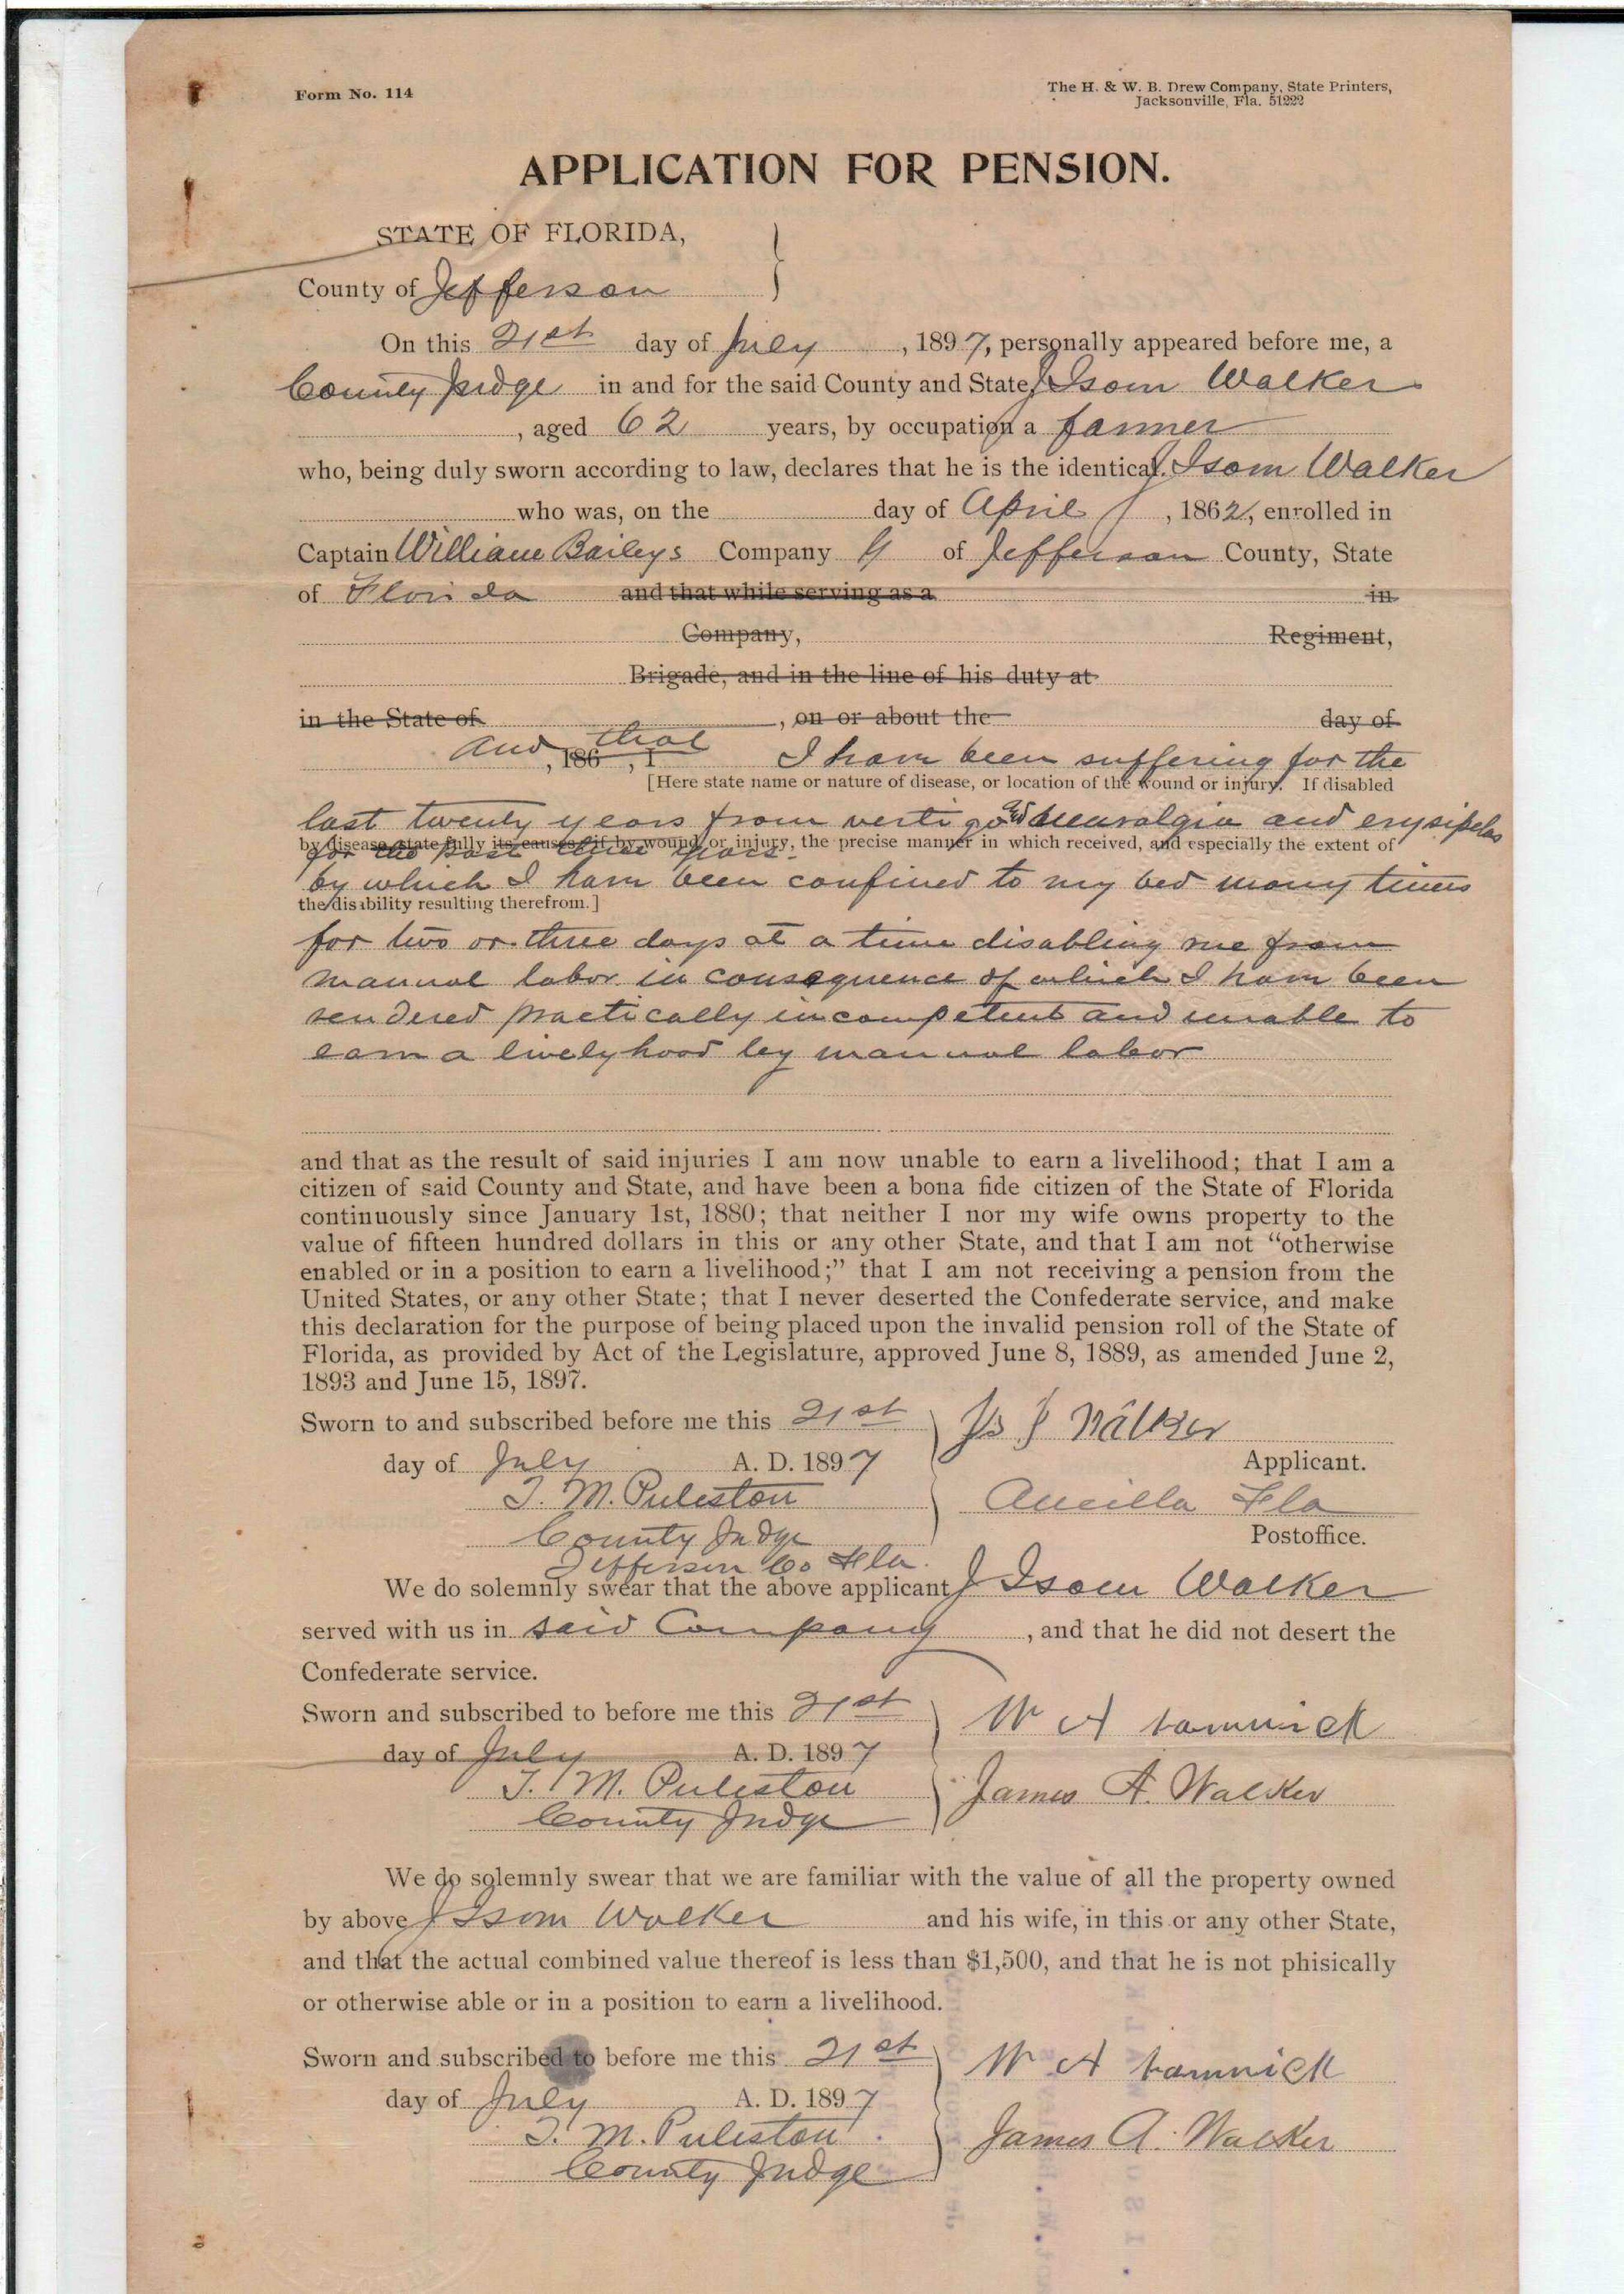 Form No. 114
The H. & W. B. Drew Company, State Printers,
Jacksonville, Fla. 51222
APPLICATION FOR PENSION.
STATE OF FLORIDA,
County of Jefferson
On this 21st day of July, 1897, personally appeared before me, a
County Judge in and for the said County and State, J Isom Walker
, aged 62 years, by occupation a farmer
who, being duly sworn according to law, declares that he is the identical J. Isom Walker
who was, on the day of April, 1862, enrolled in
Captain William Baileys Company G of Jefferson County, State
of Florida and that while serving as a in
Company, Regiment,
Brigade, and in the line of his duty at
in the State of , on or about the day of
and that
, 186 , I I have been suffering for the
[Here state name or nature of disease, or location of the wound or injury. If disabled
last twenty years from vertigo and Neuralgia and erysipelas
by disease, state fully its causes; if by wound or injury, the precise manner in which received, and especially the extent of
for the past three years.
by which I have been confined to my bed many times
the disability resulting therefrom.]
for two or three days at a time disabling me from
manual labor in consequence of which I have been
rendered practically incompetent and unable to
earn a livelyhood by manual labor
and that as the result of said injuries I am now unable to earn a livelihood; that I am a
citizen of said County and State, and have been a bona fide citizen of the State of Florida
continuously since January 1st, 1880; that neither I nor my wife owns property to the
value of fifteen hundred dollars in this or any other State, and that I am not “otherwise
enabled or in a position to earn a livelihood;” that I am not receiving a pension from the
United States, or any other State; that I never deserted the Confederate service, and make
this declaration for the purpose of being placed upon the invalid pension roll of the State of
Florida, as provided by Act of the Legislature, approved June 8, 1889, as amended June 2,
1893 and June 15, 1897.
Sworn to and subscribed before me this 21st J Walker
day of July A. D. 1897 Applicant.
T. M. Puleston Aucilla Fla
County Judge Postoffice.
Jefferson Co Fla.
We do solemnly swear that the above applicant J Isom Walker
served with us in said Company, and that he did not desert the
Confederate service.
Sworn and subscribed to before me this 21st W A
day of July A. D. 1897
T. M. Puleston James A. Walker
County Judge
We do solemnly swear that we are familiar with the value of all the property owned
by above J Isom Walker and his wife, in this or any other State,
and that the actual combined value thereof is less than $1,500, and that he is not phisically
or otherwise able or in a position to earn a livelihood.
Sworn and subscribed to before me this 21st W A
day of July A. D. 1897
T. M. Puleston James A. Walker
County Judge